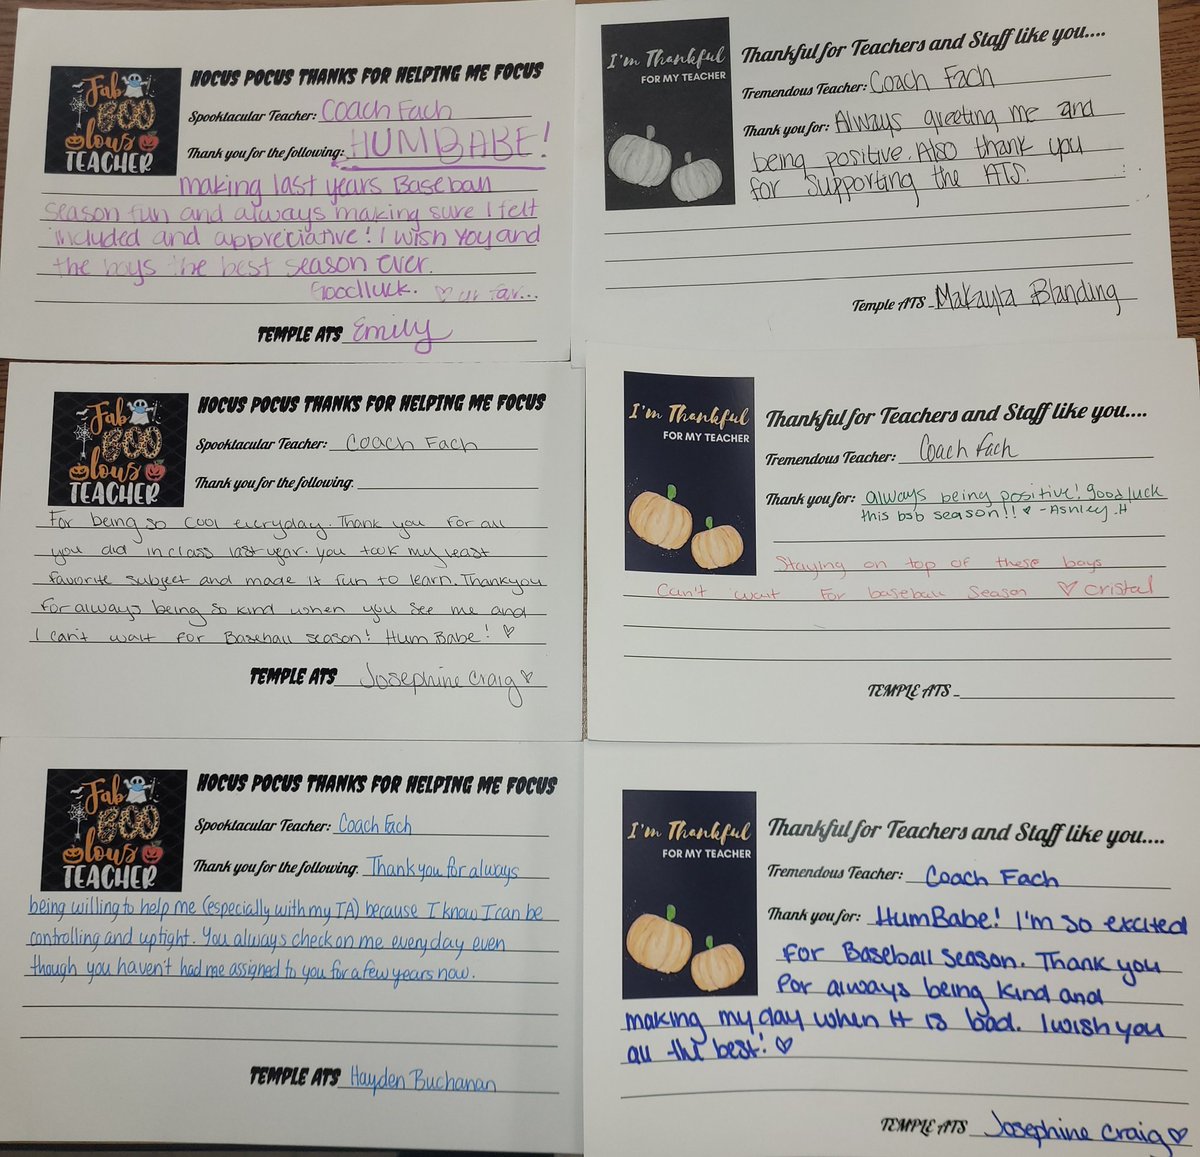 Fab
BOO
lous
TEACHER
HOCUS POCUS THANKS FOR HELPING ME FOCUS
Spooktacular Teacher: Coach Fach
Thank you for the following: HUMBABE!
making last years Baseball
season fun and always making sure I felt
included and appreciative! I wish you and
the boys the best season ever.
Goodluck. ♡ ur fav...
TEMPLE ATS Emily
I'm Thankful
FOR MY TEACHER
Thankful for Teachers and Staff like you....
Tremendous Teacher: Coach Fach
Thank you for: Always greeting me and
being positive. Also thank you
for supporting the ATS.
Temple ATS Makayla Blanding
Fab
BOO
lous
TEACHER
HOCUS POCUS THANKS FOR HELPING ME FOCUS
Spooktacular Teacher: Coach Fach
Thank you for the following.
For being so cool everyday. Thank you for all
you did in class last year. you took my least
favorite subject and made it fun to learn. Thankyou
for always being so kind when you see me and
I can't wait for Baseball season! Hum Babe! ♡
TEMPLE ATS Josephine Craig ♡
I'm Thankful
FOR MY TEACHER
Thankful for Teachers and Staff like you....
Tremendous Teacher: Coach Fach
Thank you for: always being positive! good luck
this bsb season!! ♥ -Ashley.H
Staying on top of these boys
Can't wait for baseball season ♡ Cristal
TEMPLE ATS
Fab
BOO
lous
TEACHER
HOCUS POCUS THANKS FOR HELPING ME FOCUS
Spooktacular Teacher: Coach Fach
Thank you for the following. Thank you for always
being willing to help me (especially with my IA) because I know I can be
controlling and uptight. You always check on me everyday even
though you haven't had me assigned to you for a few years now.
TEMPLE ATS Hayden Buchanan
I'm Thankful
FOR MY TEACHER
Thankful for Teachers and Staff like you....
Tremendous Teacher: Coach Fach
Thank you for: HumBabe! I'm so excited
for Baseball season. Thank you
for always being kind and
making my day when it is bad. I wish you
all the best! ♡
TEMPLE ATS Josephine Craig ♡